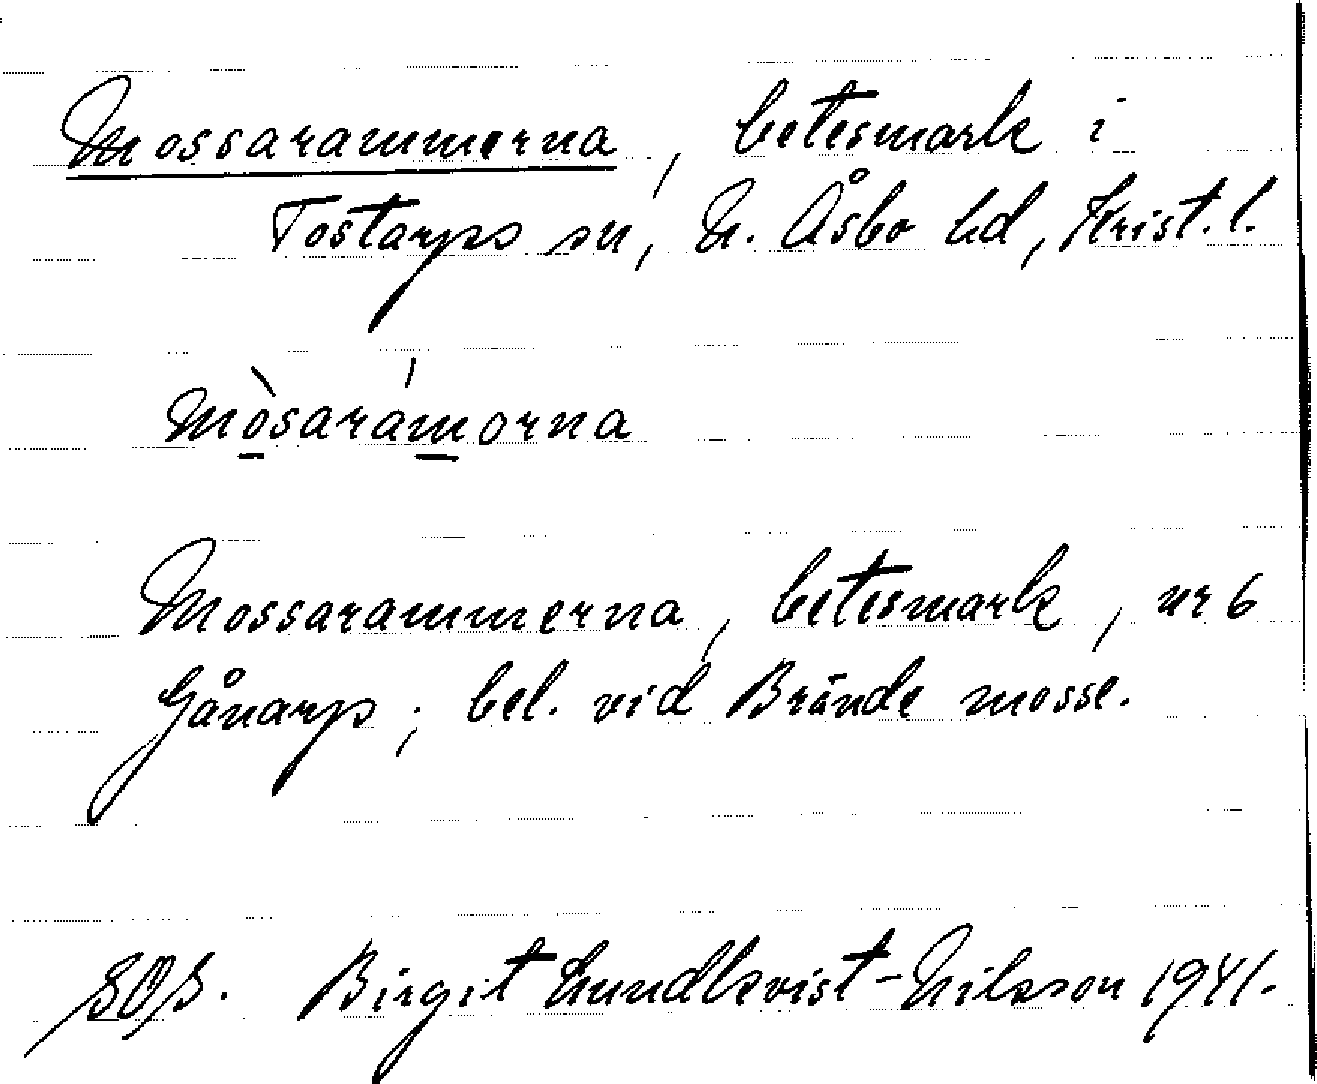 Mossarammerna, betesmark i
Tostarps sn, N. Åsbo hd, Krist. l.
mò̱sarám̱orna
Mossarammerna, betesmark, nr 6
Gånarp; bel. vid Brände mosse.
SOS. Birgit Lundkvist-Nilsson 1941.